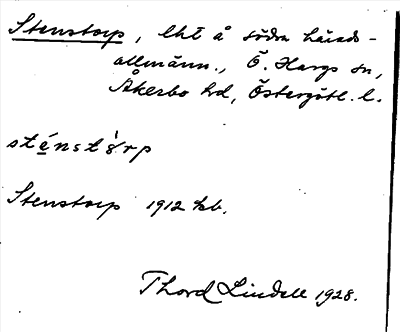 Stenstorp, lht å södra härads-
allmänn., Ö. Hargs sn,
Åkerbo hd, Östergötl. l.
sténstòrp
Stenstorp 1912 kb.
Thord Lindell 1928.